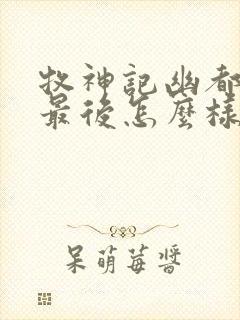 牧神記幽都
最後怎麼樣
呆萌莓醬